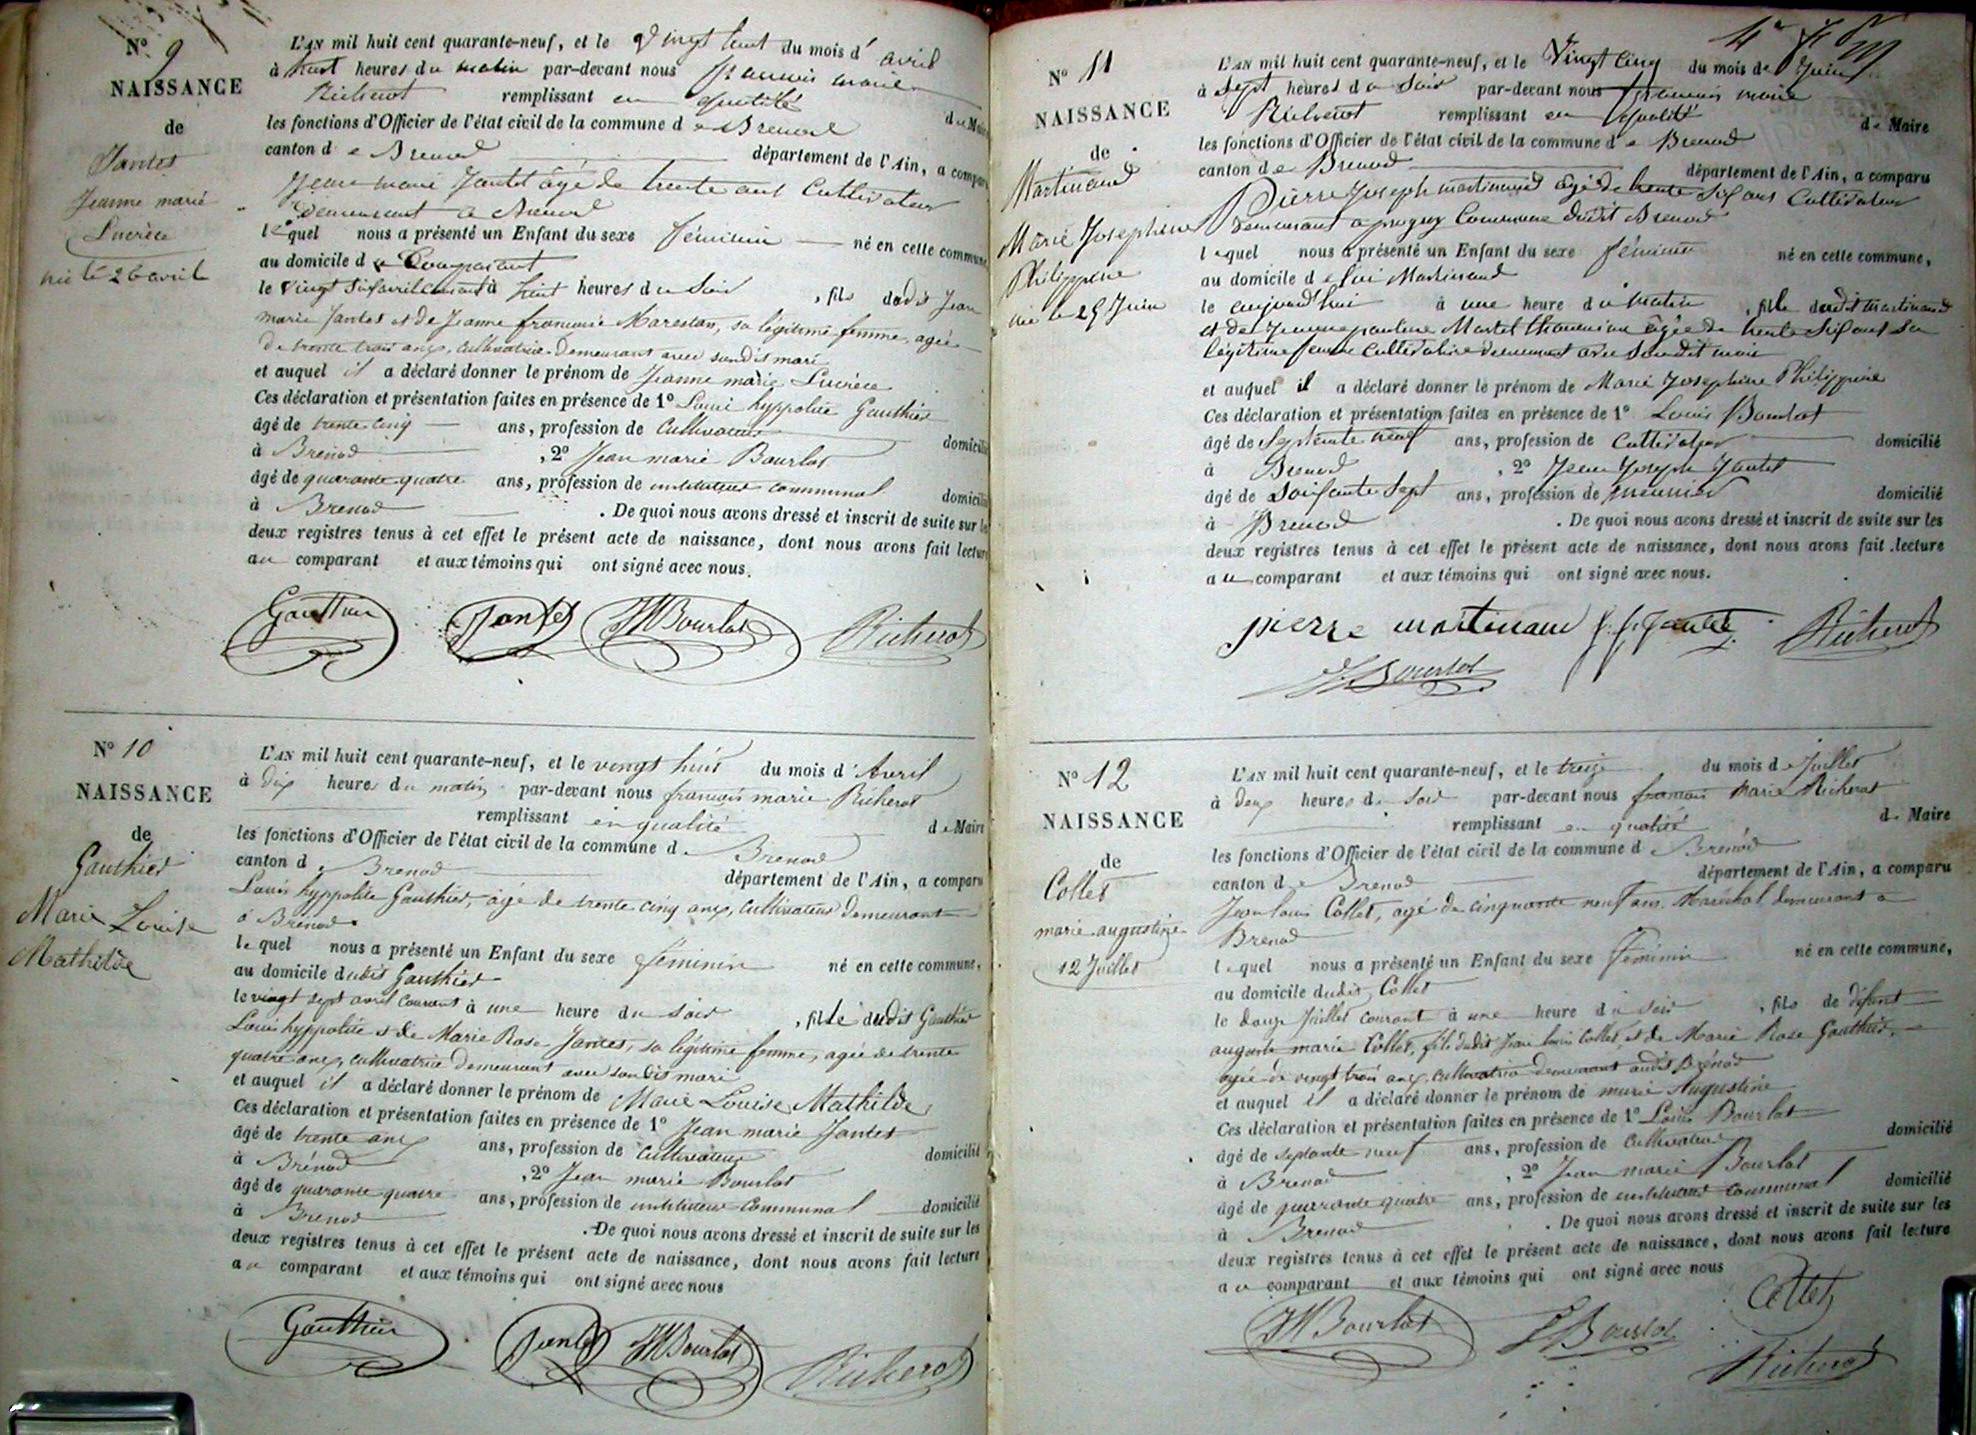 Nº 9
NAISSANCE
de
Jantet
Jeanne marie
Lucrèce
née le 26 avril
L'AN mil huit cent quarante-neuf, et le vingt huit du mois d'avril
à huit heures du matin par-devant nous françois marie
Richerot remplissant en qualité de Maire
les fonctions d'Officier de l'état civil de la commune de Brenod
canton de Brenod département de l'Ain, a comparu
Jean marie Jantet âgé de trente ans Cultivateur
demeurant à Brenod
lequel nous a présenté un Enfant du sexe féminin né en cette commune,
au domicile du Comparant
le vingt six avril courant à huit heures du Soir , fille dudit Jean
marie Jantet et de Jeanne françoise Marestan, sa légitime femme, agée
de trente trois ans, cultivatrice demeurant avec sondit mari
et auquel il a déclaré donner le prénom de Jeanne marie Lucrèce
Ces déclaration et présentation faites en présence de 1º Louis hyppolite Gauthier
âgé de trente cinq ans, profession de Cultivateur domicilié
à Brenod , 2º Jean marie Bourlot
âgé de quarante quatre ans, profession de instituteur communal domicilié
à Brenod . De quoi nous avons dressé et inscrit de suite sur les
deux registres tenus à cet effet le présent acte de naissance, dont nous avons fait lecture
au comparant et aux témoins qui ont signé avec nous.
Gauthier Jantet JMBourlot Richerot
Nº 10
NAISSANCE
de
Gauthier
Marie Louise
Mathilde
L'AN mil huit cent quarante-neuf, et le vingt huit du mois d'Avril
à dix heures du matin par-devant nous françois marie Richerot
remplissant en qualité de Maire
les fonctions d'Officier de l'état civil de la commune d. Brenod
canton de Brenod département de l'Ain, a comparu
Louis hyppolite Gauthier, âgé de trente cinq ans, cultivateur demeurant
à Brenod
lequel nous a présenté un Enfant du sexe féminin né en cette commune,
au domicile dudit Gauthier
le vingt sept avril courant à une heure du soir , fille dudit Gauthier
Louis hyppolite et de Marie Rose Jantet, sa légitime femme, agée de trente
quatre ans, cultivatrice demeurant avec sondit mari
et auquel il a déclaré donner le prénom de Marie Louise Mathilde,
Ces déclaration et présentation faites en présence de 1º Jean marie Jantet
âgé de trente ans ans, profession de Cultivateur domicilié
à Brénod , 2º Jean marie Bourlot
âgé de quarante quatre ans, profession de instituteur Communal domicilié
à Brenod . De quoi nous avons dressé et inscrit de suite sur les
deux registres tenus à cet effet le présent acte de naissance, dont nous avons fait lecture
au comparant et aux témoins qui ont signé avec nous
Gauthier Jantet JMBourlot Richerot
Nº 11
NAISSANCE
de
Martinand
Marie Josephine
Philippine
née le 25 Juin
L'AN mil huit cent quarante-neuf, et le Vingt Cinq du mois de Juin
à sept heures du Soir par-devant nous françois marie
Richerot remplissant en qualité de Maire
les fonctions d'Officier de l'état civil de la commune de Brenod
canton de Brenod département de l'Ain, a comparu
Pierre Joseph martinand âgé de trente Six ans Cultivateur
demeurant a Commune dudit Brenod
lequel nous a présenté un Enfant du sexe féminin né en cette commune,
au domicile de lui Martinand
le aujourd'hui à une heure du matin , fille dudit Martinand
et de Jeanne pauline Martel âgée de trente Six ans Sa
légitime femme Cultivatrice demeurant avec Son dit mari
et auquel il a déclaré donner le prénom de Marie Josephine Philippine
Ces déclaration et présentation faites en présence de 1º Louis Bourlot
âgé de Septante neuf ans, profession de Cultivateur domicilié
à Brenod , 2º Jean Joseph Jantet
âgé de Soixante Sept ans, profession de meunier domicilié
à Brenod . De quoi nous avons dressé et inscrit de suite sur les
deux registres tenus à cet effet le présent acte de naissance, dont nous avons fait lecture
au comparant et aux témoins qui ont signé avec nous.
pierre martinand J. J. Jantet Richerot
L Bourlot
Nº 12
NAISSANCE
de
Collet
marie augustine
12 Juillet
L'AN mil huit cent quarante-neuf, et le treize du mois de Juillet
à deux heures du Soir par-devant nous françois Marie Richerot
remplissant en qualité de Maire
les fonctions d'Officier de l'état civil de la commune de Brénod
canton de Brenod département de l'Ain, a comparu
Jean louis Collet, agé de cinquante neuf ans Maréchal demeurant a
Brenod
lequel nous a présenté un Enfant du sexe féminin né en cette commune,
au domicile dudit Collet
le douze Juillet courant à une heure du soir , fille de défunt
auguste marie Collet, fils dudit Jean louis Collet, et de Marie Rose Gauthier,
agée de vingt trois ans, cultivatrice demeurant audit Brénod
et auquel il a déclaré donner le prénom de marie Augustine
Ces déclaration et présentation faites en présence de 1º Louis Bourlot
âgé de septante neuf ans, profession de Cultivateur domicilié
à Brenod , 2º Jean marie Bourlot
âgé de quarante quatre ans, profession de instituteur communal domicilié
à Brenod . De quoi nous avons dressé et inscrit de suite sur les
deux registres tenus à cet effet le présent acte de naissance, dont nous avons fait lecture
au comparant et aux témoins qui ont signé avec nous
JMBourlot L Bourlot Collet
Richerot